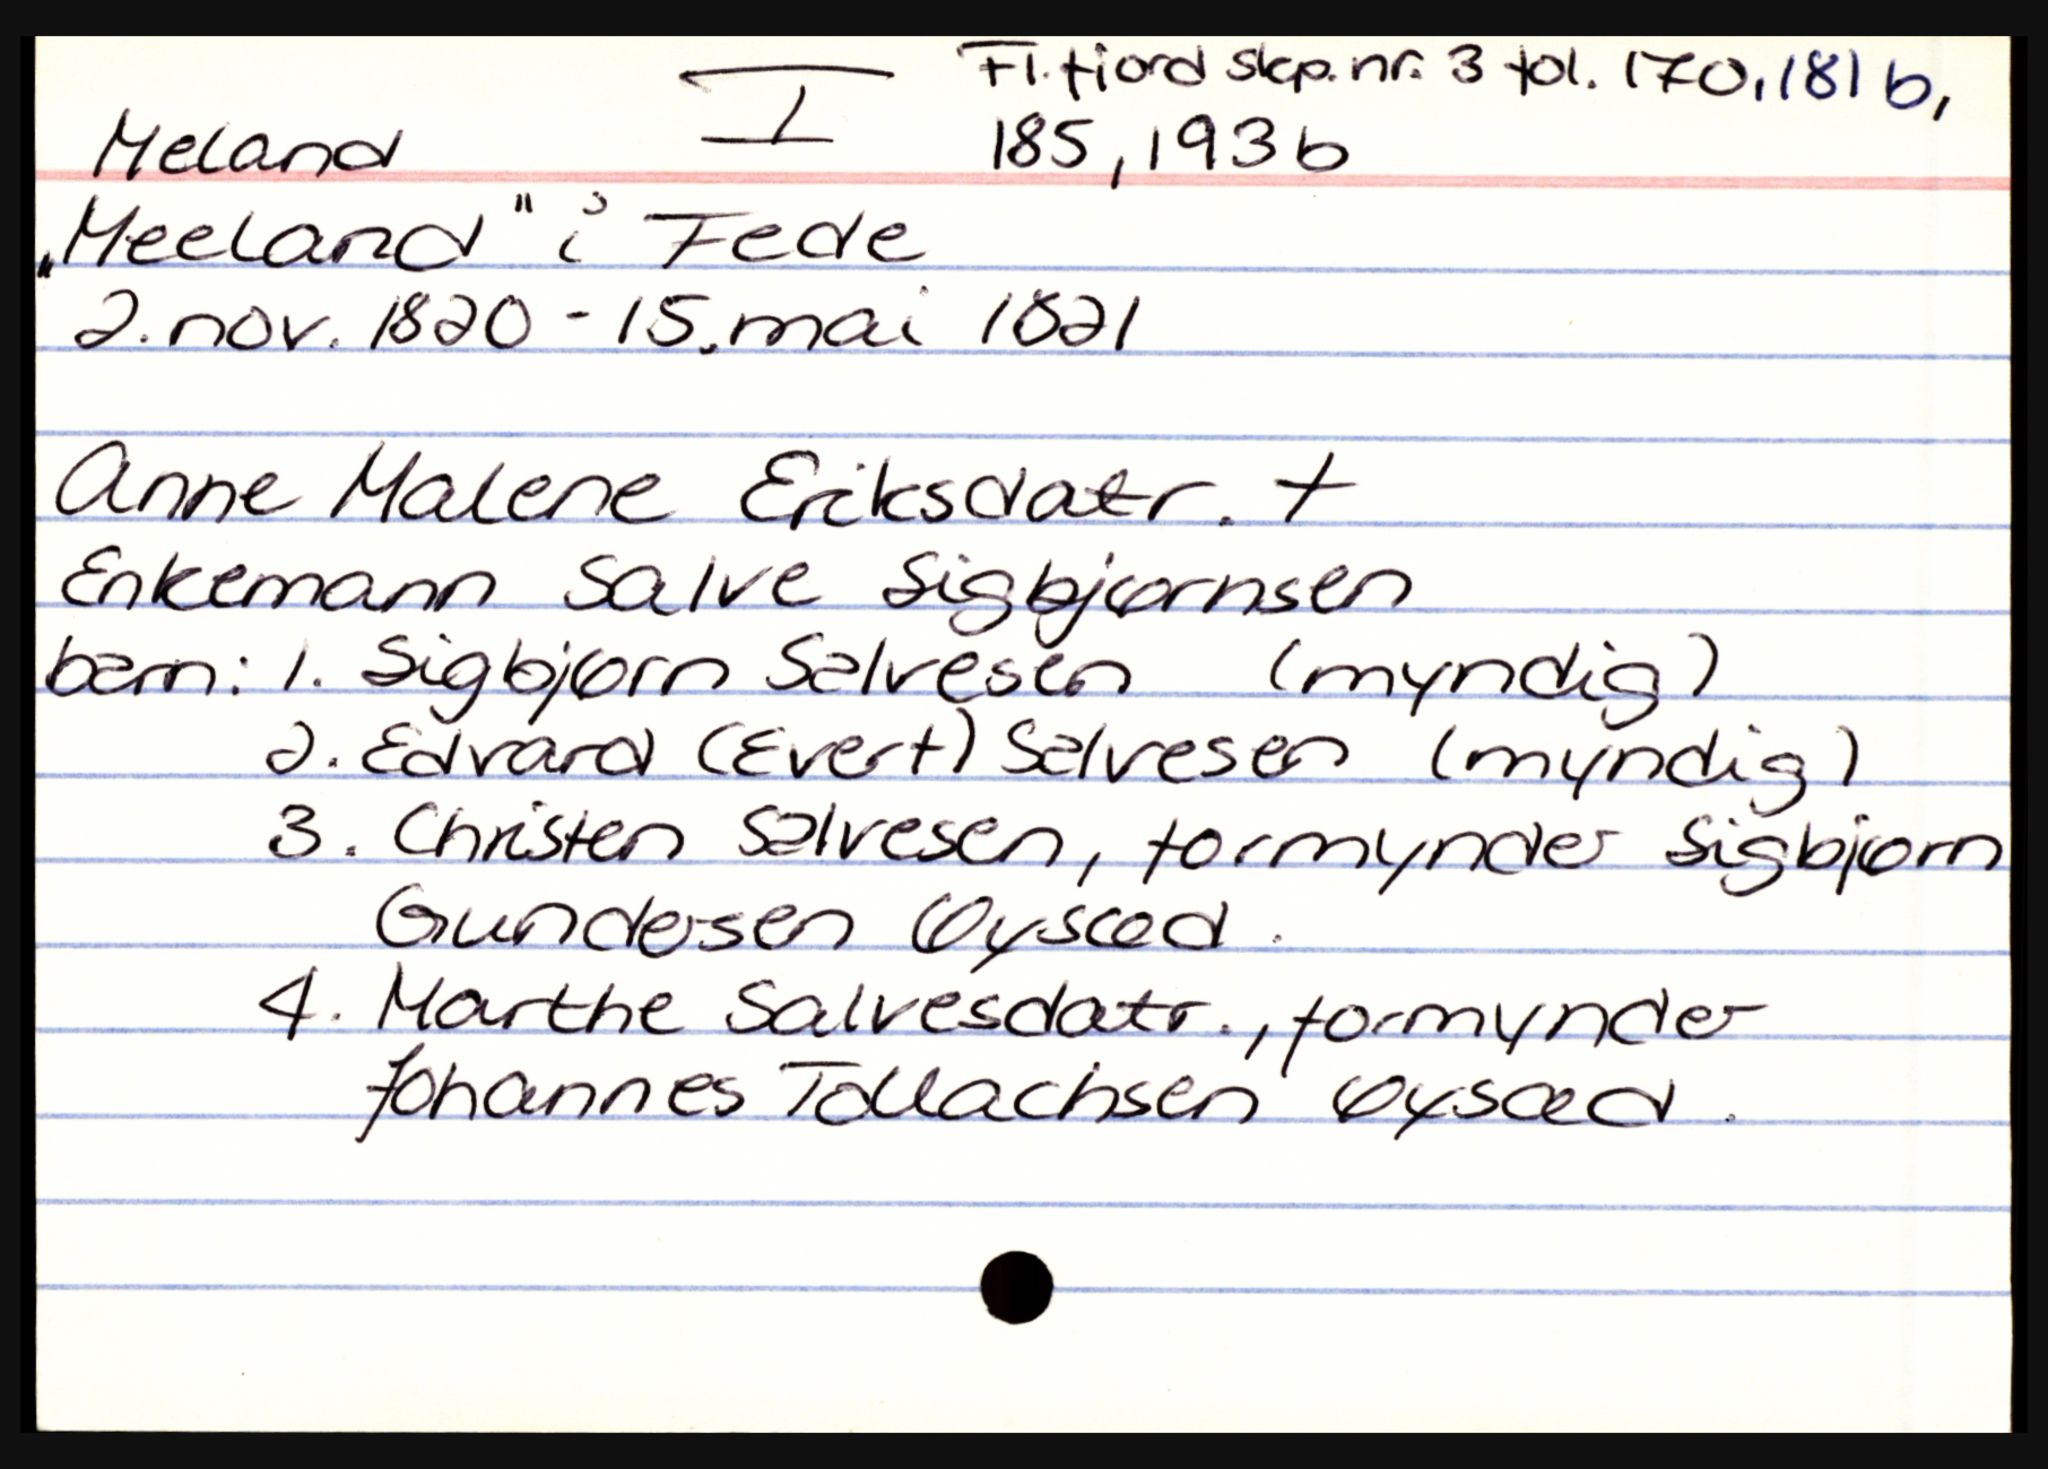 I Fl.fjord skp. nr. 3 fol. 170, 181 b,
Meland 185, 193 b
„Meeland" i Fede
2. nov. 1820 - 15. mai 1821
Anne Malene Eriksdatr. +
Enkemann Salve Sigbjørnsen
barn: 1. Sigbjørn Salvesen (myndig)
2. Edvard (Evert) Salvesen (myndig)
3. Christen Salvesen, formynder Sigbjørn
Gundersen Øysæd.
4. Marthe Salvesdatr., formynder
Johannes Tollachsen Øysæd.